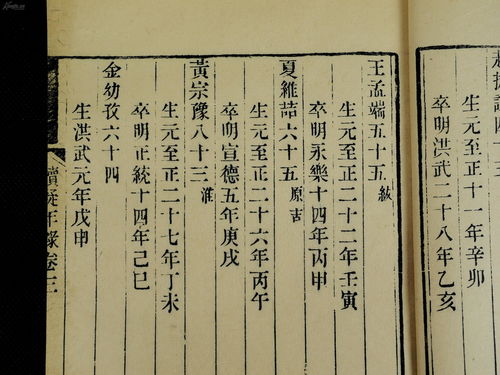 生元至正十一年辛卯
卒明洪武二十八年乙亥
王孟端五十五 紱
生元至正二十二年壬寅
卒明永樂十四年丙申
夏維喆六十五 原吉
生元至正二十六年丙午
卒明宣德五年庚戌
黃宗豫八十三 淮
生元至正二十七年丁未
卒明正統十四年己巳
金幼孜六十四
生洪武元年戊申
續疑年錄卷三